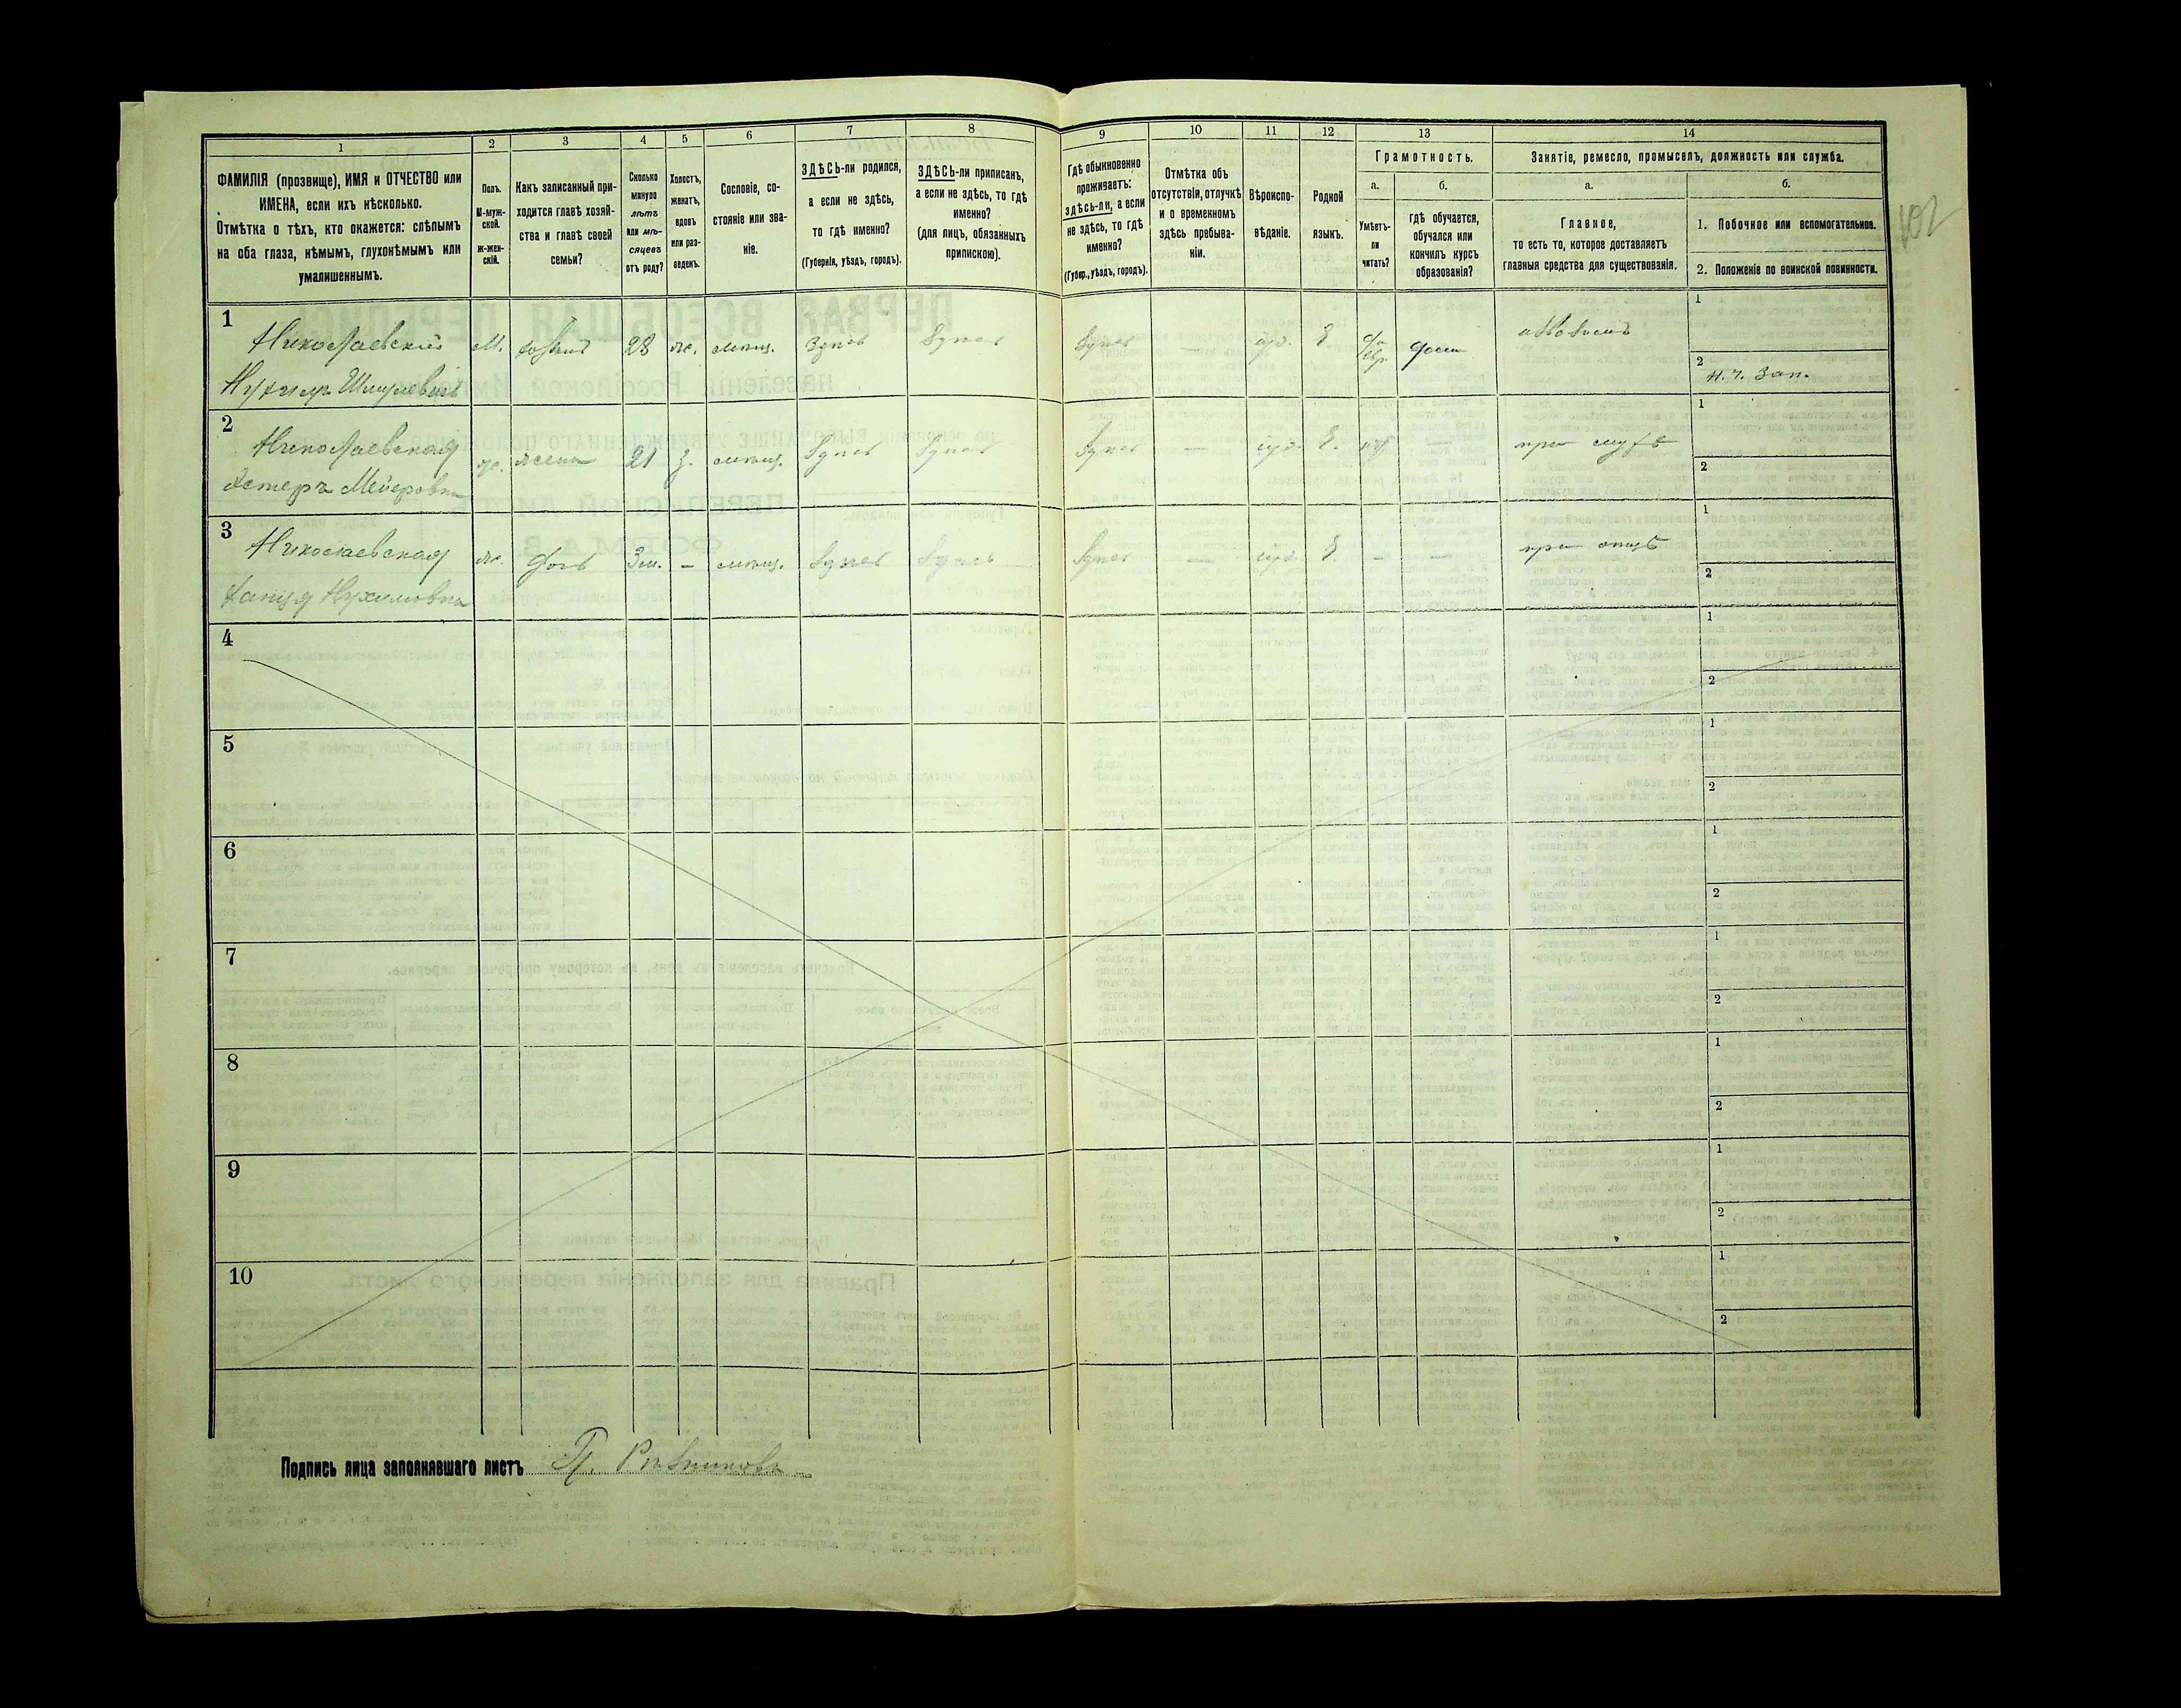 1 2 3 4 5 6 7 8 9 10 11 12 13 14
ФАМИЛІЯ (прозвище), ИМЯ и ОТЧЕСТВО или
ИМЕНА, если ихъ нѣсколько.
Отмѣтка о тѣхъ, кто окажется: слѣпымъ
на оба глаза, нѣмымъ, глухонѣмымъ или
умалишеннымъ.
Полъ.
М-муж-
ской.
ж-жен-
скій.
Какъ записанный при-
ходится главѣ хозяй-
ства и главѣ своей
семьи?
Сколько
минуло
лѣтъ
или мѣ-
сяцевъ
отъ роду?
Холостъ,
женатъ,
вдовъ
или раз-
веденъ.
Сословіе, со-
стояніе или зва-
ніе.
ЗДѢСЬ-ли родился,
а если не здѣсь,
то гдѣ именно?
(Губернія, уѣздъ, городъ).
ЗДѢСЬ-ли приписанъ,
а если не здѣсь, то гдѣ
именно?
(для лицъ, обязанныхъ
припискою).
Гдѣ обыкновенно
проживаетъ:
здѣсь-ли, а если
не здѣсь, то гдѣ
именно?
(Губер., уѣздъ, городъ).
Отмѣтка объ
отсутствіи, отлучкѣ
и о временномъ
здѣсь пребыва-
ніи.
Вѣроиспо-
вѣданіе.
Родной
языкъ.
Грамотность.
а.
Умѣетъ-
ли
читать?
б.
гдѣ обучается,
обучался или
кончилъ курсъ
образованія?
Занятіе, ремесло, промыселъ, должность или служба.
а.
Главное,
то есть то, которое доставляетъ
главныя средства для существованія.
б.
1. Побочное или вспомогательное.
2. Положеніе по воинской повинности.
102
1
Николаевскій М. 28 ж. мѣщ. Здѣсь Здѣсь Здѣсь — іуд. Е дома 1
Нухимъ Шмулевичъ 2 н. ч. зап.
2
Николаевская ж. жена 21 з. мѣщ. Здѣсь Здѣсь Здѣсь — іуд. Е. — при мужѣ 1
Эстеръ Мейеровна 2
3
Николаевская ж. дочь 3 м. – мѣщ. Здѣсь Здѣсь Здѣсь — іуд. Е – — при отцѣ 1
Нухимовна 2
4 1
2
5 1
2
6 1
2
7 1
2
8 1
2
9 1
2
10 1
2
Подпись лица заполнявшаго листъ